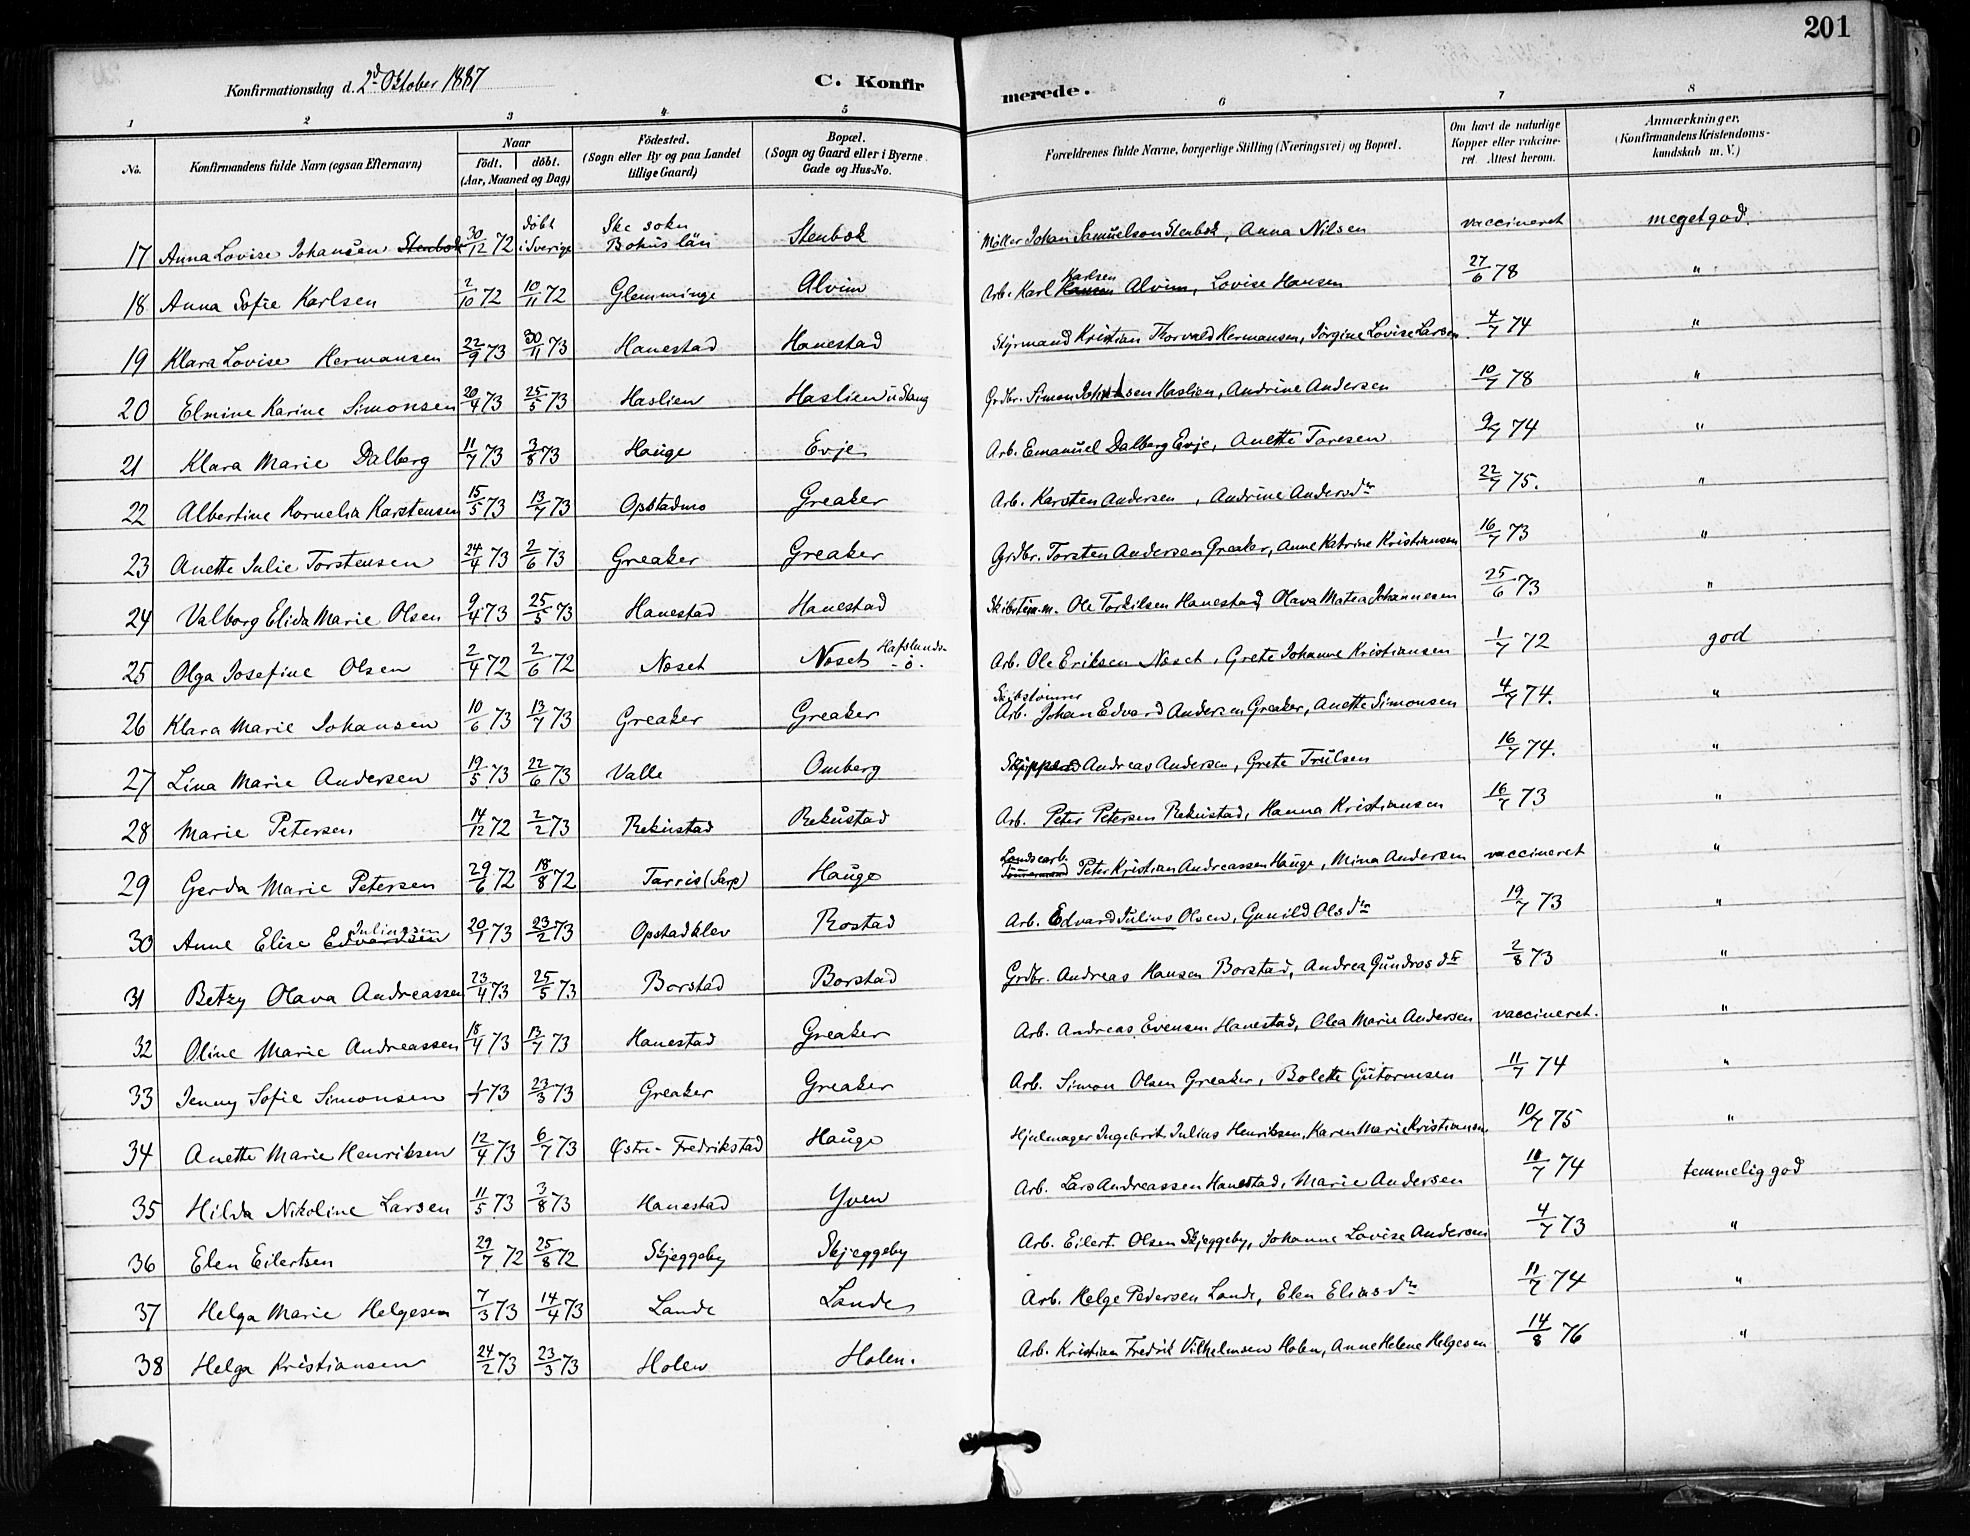 201
Konfirmationsdag d. 2d Oktober 1887 C. Konfirmerede.
1 2 3 4 5 6 7 8
No. Konfirmandens fulde Navn (ogsaa Efternavn) Naar født. døbt. (Aar, Maaned og Dag) Fødested. (Sogn eller By og paa Landet tillige Gaard) Bopæl. (Sogn og Gaard eller i Byerne Gade og Hus-No. Forældrenes fulde Navne, borgerlige Stilling (Næringsvei) og Bopæl. Om havt de naturlige Kopper eller vakcineret. Attest herom. Anmærkninger. (Konfirmandens Kristendomskundskab m. V.)
17 Anna Lovise Johansen Stenbok 30/12 72 døbt i Sverige Ske sokn Bohus län Stenbok Møller Johan Samuelson Stenbok, Anna Nilsen vaccineret meget god.
18 Anna Sofie Karlsen 2/10 72 10/11 72 Glemminge Alvim Arb. Karl Hansen Karlsen Alvim, Lovise Hansen 27/6 78 "
19 Klara Lovise Hermansen 22/9 73 30/11 73 Hanestad Hanestad Styrmand Kristian Thorvald Hermansen, Jörgine Lovise Larsen 4/7 74 "
20 Elmine Karine Simonsen 20/4 73 25/5 73 Haslien Haslien i Stang Grdbr. Simon Johansen Haslien, Andrine Andersen 10/7 78 "
21 Klara Marie Dalberg 11/7 73 3/8 73 Hauge Evje Arb. Emanuel Dalberg Evje, Anette Toresen 9/7 74 "
22 Albertine Kornelia Karstensen 15/5 73 13/7 73 Opstadmo Greaker Arb. Karsten Andersen, Andrine Andersdr 22/7 75. "
23 Anette Julie Torstensen 24/4 73 2/6 73 Greaker Greaker Grdbr. Torsten Andersen Greaker, Anne Katrine Kristiansen 16/7 73 "
24 Valborg Elida Marie Olsen 9/4 73 25/5 73 Hanestad Hanestad Skibstøm.m. Ole Torkilsen Hanestad, Olava Matea Johannesen 25/6 73 "
25 Olga Josefine Olsen 2/4 72 2/6 72 Noset Noset Hafslunds-ö. Arb. Ole Eriksen Noset, Grete Johanne Kristiansen 1/7 72 god
26 Klara Marie Johansen 10/6 73 13/7 73 Greaker Greaker Skibstömmer Arb. Johan Edvard Andersen Greaker, Anette Simonsen 4/7 74. "
27 Lina Marie Andersen 19/5 73 22/6 73 Valle Omberg Skipper Andreas Andersen, Grete Trulsen 16/7 74. "
28 Marie Petersen 14/12 72 2/2 73 Rekustad Rekustad Arb. Peter Petersen Rekustad, Hanna Kristiansen 16/7 73 "
29 Gerda Marie Petersen 29/6 72 18/8 72 Tarris (Sarp) Hauge Landsarb. Tömmermand Peter Kristian Andreassen Hauge, Mina Andersen vaccineret "
30 Anne Elise Edvardsen Juliussen 20/1 73 23/2 73 Opstadklev Rostad Arb. Edvard Julius Olsen, Gunild Olsdr 19/7 73 "
31 Betzy Olava Andreassen 23/4 73 25/5 73 Borstad Borstad Grdbr. Andreas Hansen Borstad, Andrea Gundrosdr 2/8 73 "
32 Oline Marie Andreassen 18/4 73 13/7 73 Hanestad Greaker Arb. Andreas Evensen Hanestad, Olea Marie Andersen vaccineret. "
33 Jenny Sofie Simonsen 1/1 73 23/3 73 Greaker Greaker Arb. Simon Olsen Greaker, Bolette Gutormsen 11/7 74 "
34 Anette Marie Henriksen 12/4 73 6/7 73 Østre-Fredrikstad Hauge Hjulmager Ingebrit Julius Henriksen, Karen Marie Kristiansen 10/7 75 "
35 Hilda Nikoline Larsen 11/5 73 3/8 73 Hanestad Yven Arb. Lars Andreassen Hanestad, Marie Andersen 11/7 74 temmelig god
36 Elen Eilertsen 29/7 72 25/8 72 Skjeggeby Skjeggeby Arb. Eilert Olsen Skjeggeby, Johanne Lovise Andersen 4/7 73 "
37 Helga Marie Helgesen 7/3 73 14/4 73 Lande Lande Arb. Helge Pedersen Lande, Elen Eliasdr 11/7 74 "
38 Helga Kristiansen 24/2 73 23/3 73 Holen Holen. Arb. Kristian Fredrik Vilhelmsen Holen, Anne Helene Helgesen 14/8 76 "